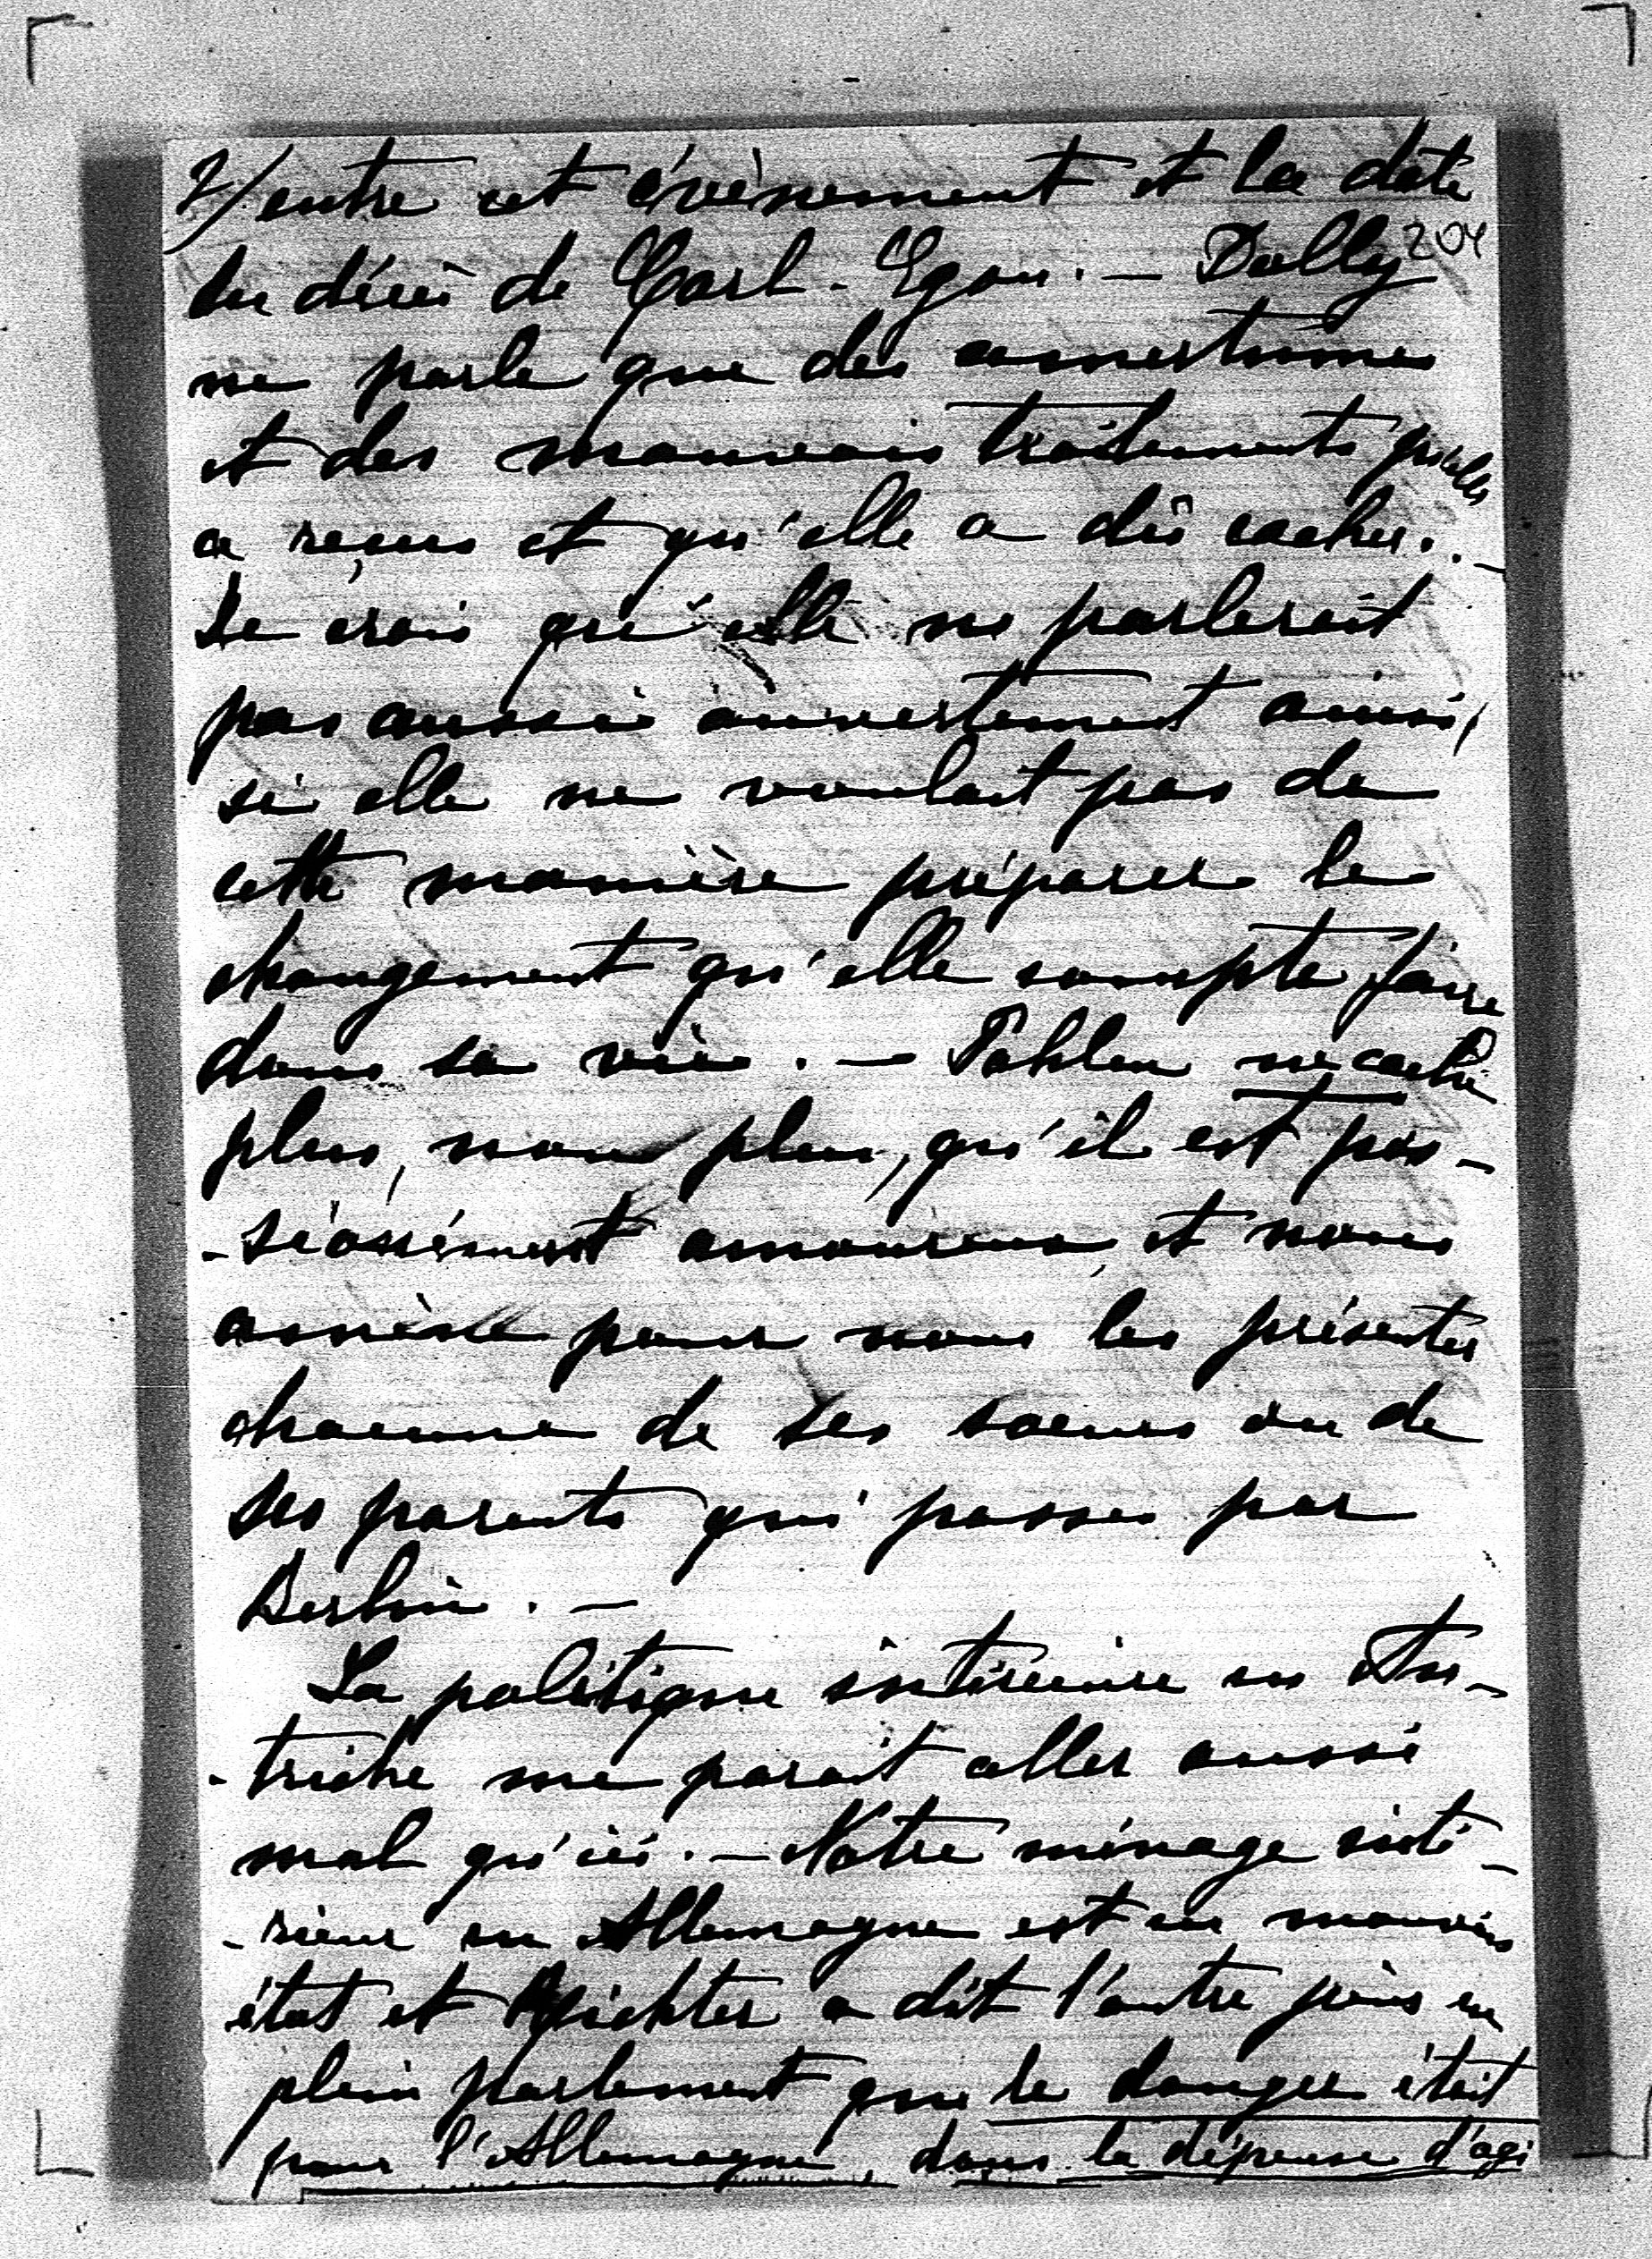 2/ entre cet évènement et la date
204
du décès de Carl-Egon. — Dolly
ne parle que des amertumes
et des mauvais traitements qu'elle
a reçus et qu'elle a dû cacher. —
Je crois qu'elle ne parlerait
pas aussi ouvertement ainsi,
si elle ne voulait pas de
cette manière préparer le
changement qu'elle compte faire
dans sa vie. — Pahlen ne cache
plus, non plus, qu'il est pas-
-sionnément amoureux, et nous
amène pour nous les présenter
chacune de ses soeurs ou de
ses parents qui passe par
Berlin. —
La politique intérieure en Au-
-triche me parait aller aussi
mal qu'ici. — Notre ménage inté-
-rieur en Allemagne est en mauvais
état et Richter a dit l'autre jour en
plein parlement que le danger était
pour l'Allemagne dans la dépense d'agi